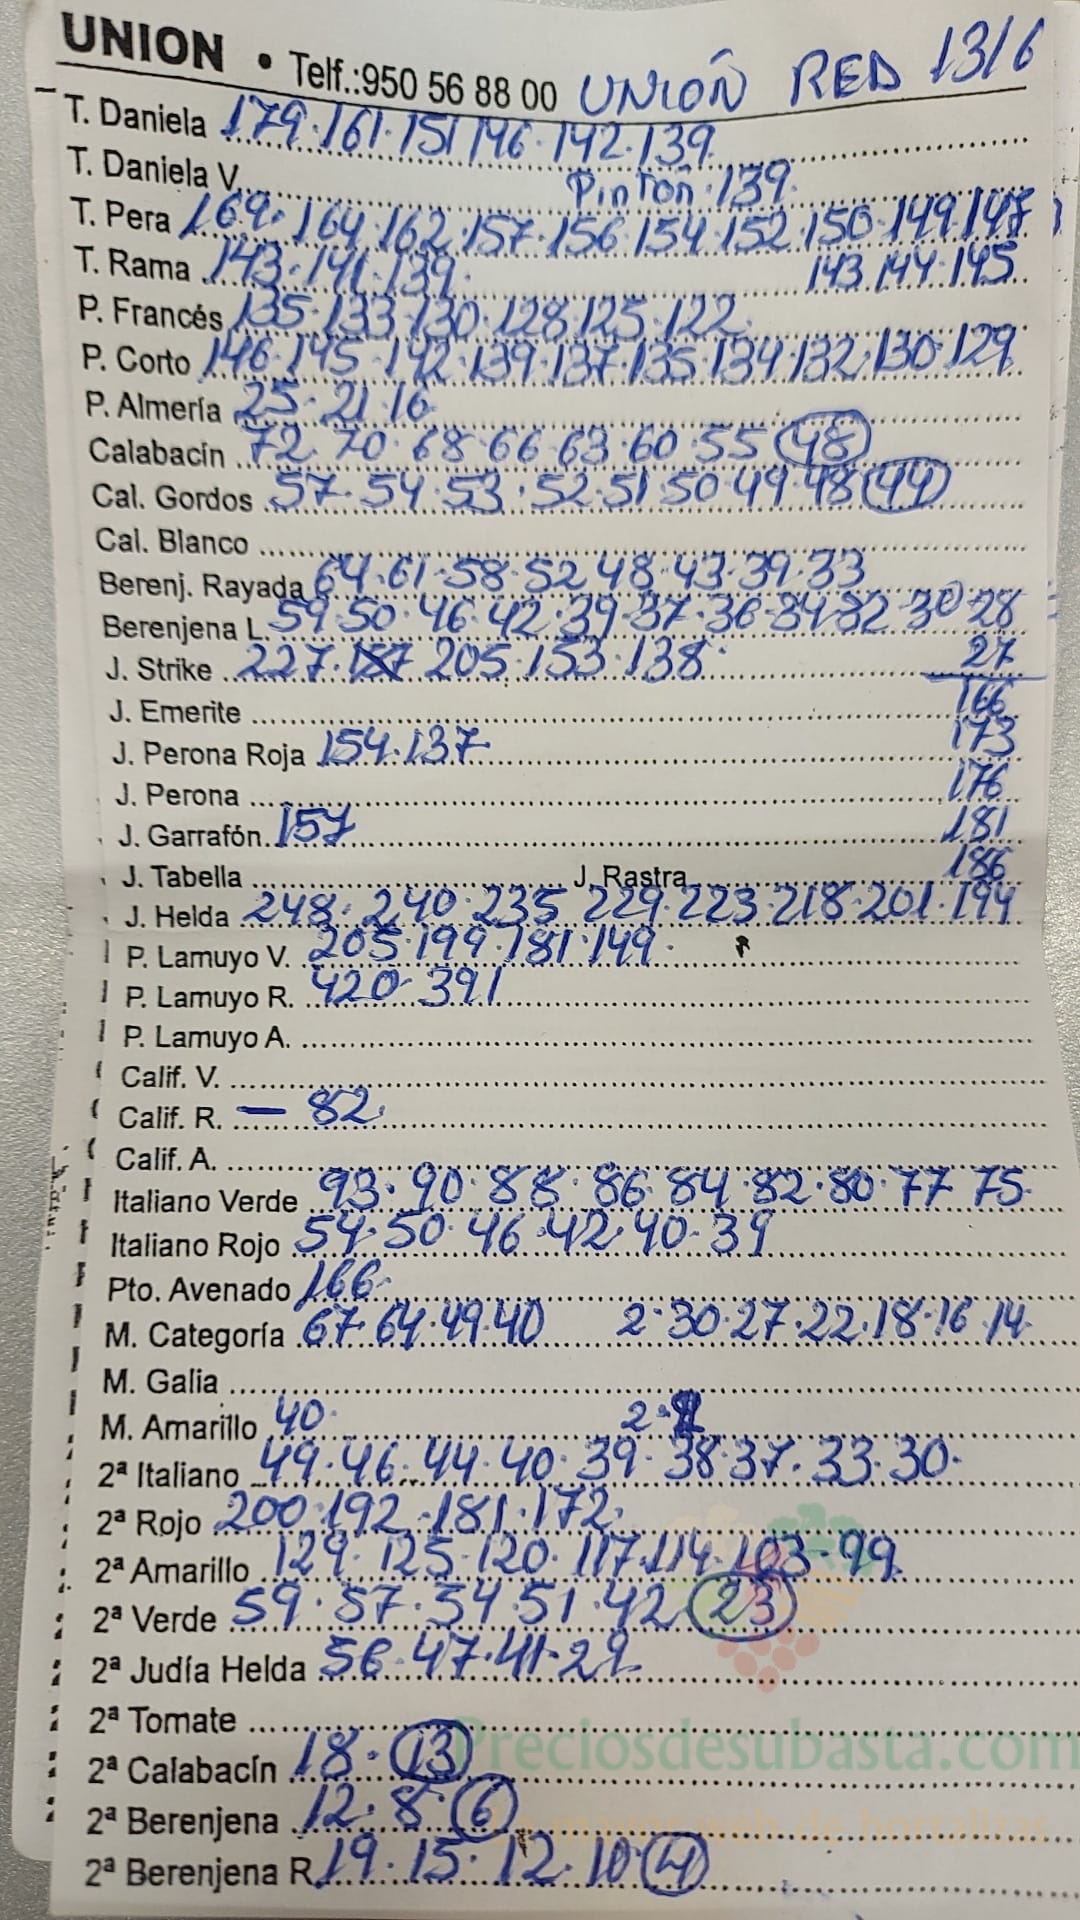 UNION • Telf.:950 56 88 00 UNIÓN RED 13/6
T. Daniela 179·161·151 146·142·139
T. Daniela V. Pinton·139
T. Pera 169·164·162·157·156·154·152·150·149·147
T. Rama 143·141·139· 143·144·145
P. Francés 135·133·130·128·125·122
P. Corto 146·145·142·139·137·135·134·132·130·129
P. Almería 25·21·16
Calabacín 72·70·68·66·63·60·55 48
Cal. Gordos 57·54·53·52·51·50·49·48 44
Cal. Blanco
Berenj. Rayada 64·61·58·52·48·43·39·33
Berenjena L. 59·50·46·42·39·37·36·34·32·30·28
J. Strike 227· 205·153·138· 27
J. Emerite 166
J. Perona Roja 154·137 173
J. Perona 176
J. Garrafón 157 181
J. Tabella J. Rastra 186
J. Helda 248·240·235·229·223·218·201·194
P. Lamuyo V. 205·199·181·149·
P. Lamuyo R. 420·391
P. Lamuyo A.
Calif. V.
Calif. R. — 82
Calif. A.
Italiano Verde 93·90·88·86·84·82·80·77·75
Italiano Rojo 54·50·46·42·40·39
Pto. Avenado 166
M. Categoría 67·64·49·40 2·30·27·22·18·16·14
M. Galia
M. Amarillo 40· 2·
2ª Italiano 49·46·44·40·39·38·37·33·30·
2ª Rojo 200·192·181·172
2ª Amarillo 129·125·120·117·114·103·99
2ª Verde 59·57·54·51·42 23
2ª Judía Helda 56·47·41·29
2ª Tomate
Preciosdesubasta.com
2ª Calabacín 18·13
2ª Berenjena 12·8·6
web de hortalizas
2ª Berenjena R. 19·15·12·10·4